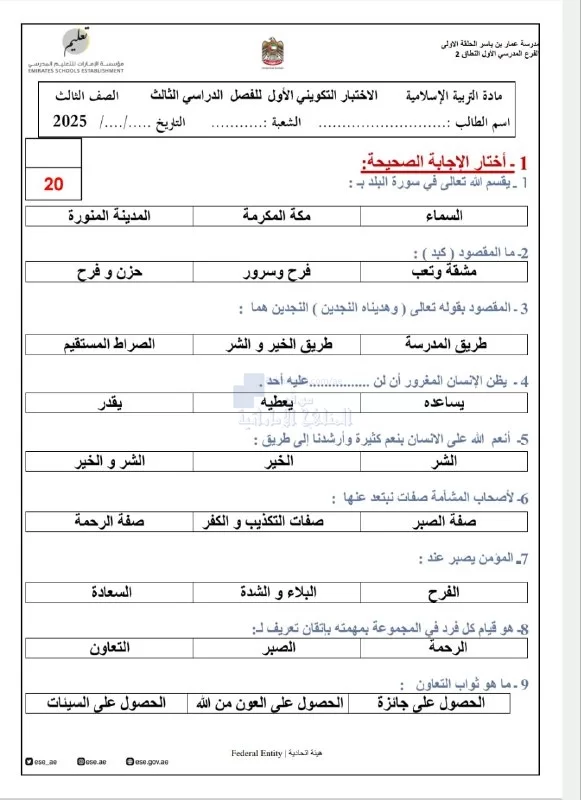 مدرسة عمار بن ياسر الحلقة الاولى
الفرع المدرسي الأول النطاق 2
تعليم
مؤسسة الإمارات للتعليم المدرسي
EMIRATES SCHOOLS ESTABLISHMENT
مادة التربية الإسلامية الاختبار التكويني الأول للفصل الدراسي الثالث الصف الثالث
اسم الطالب :............................ الشعبة :........... التاريخ ...../..../ 2025
1 - أختار الإجابة الصحيحة:
20
1 - يقسم الله تعالى في سورة البلد بـ :
السماء مكة المكرمة المدينة المنورة
2- ما المقصود ( كبد ) :
مشقة وتعب فرح وسرور حزن و فرح
3 - المقصود بقوله تعالى ( وهديناه النجدين ) النجدين هما :
طريق المدرسة طريق الخير و الشر الصراط المستقيم
4 - يظن الإنسان المغرور أن لن ................عليه أحد .
يساعده يعطيه يقدر
المناهج الإماراتية
5- أنعم الله على الانسان بنعم كثيرة وأرشدنا إلى طريق :
الشر الخير الشر و الخير
6- لأصحاب المشأمة صفات نبتعد عنها :
صفة الصبر صفات التكذيب و الكفر صفة الرحمة
7- المؤمن يصبر عند :
الفرح البلاء و الشدة السعادة
8- هو قيام كل فرد في المجموعة بمهمته بإتقان تعريف لـ:
الرحمة الصبر التعاون
9 - ما هو ثواب التعاون :
الحصول على جائزة الحصول على العون من الله الحصول على السيئات
Federal Entity | هيئة اتحادية
ese_ae ese.ae ese.gov.ae